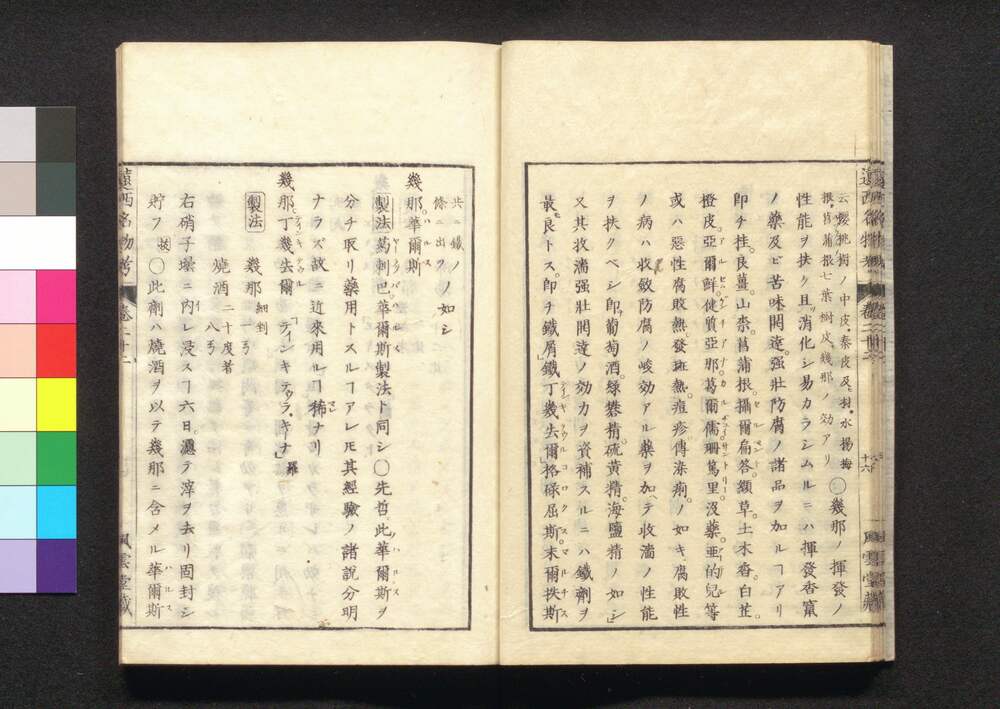 云櫻桃樹ノ中皮、秦皮及ヒ樹、水楊梅
根、菖蒲根七葉樹皮、幾那ノ効アリ
〇幾那ノ揮發ノ
性能ヲ扶ク且消化シ易カラシムルニハ揮發香竄
ノ藥及ビ苦味開達强壯防腐ノ諸品ヲ加ルヿアリ
即チ桂、良薑、山柰、菖蒲根、攝爾扁答、纈草、土木香、白芷
橙皮、亞爾鮮、健質亞那、葛爾儒、珊篤里、沒藥、亜的兒等
或ハ惡性腐敗熱發斑熱、痘疹傳染痢ノ如キ腐敗性
ノ病ハ收斂防腐ノ峻効アル藥ヲ加ヘテ收濇ノ性能
ヲ扶クベシ即葡萄酒、綠礬精、硫黄精、海鹽精ノ如シ
又其收濇强壯開達ノ効力ヲ資補スルニハ鐵劑ヲ
最良トス即チ鐵屑、鐵丁幾去爾、格碌屈斯末爾挟斯
共ニ鐵ノ
條ニ出ツノ如シ
幾那華爾斯
製法 葯剌巴華爾斯製法ト同シ〇先哲此華爾斯ヲ
分チ取リ藥用トスルヿアレ𪜈其經驗ノ諸說分明
ナラズ故ニ近來用ルヿ稀ナリ
幾那丁幾去爾 「ティンキテゥラ、キナ」羅
製法 幾那 細剉 一ヲ
燒酒 二十度者 八ヲ
右硝子壜ニ內レ浸スヿ六日、濾テ滓ヲ去リ固封シ
貯フ 扶 〇此劑ハ燒酒ヲ以テ幾那ニ含メル華爾斯
遠西名物考 卷二十二
風雲堂藏